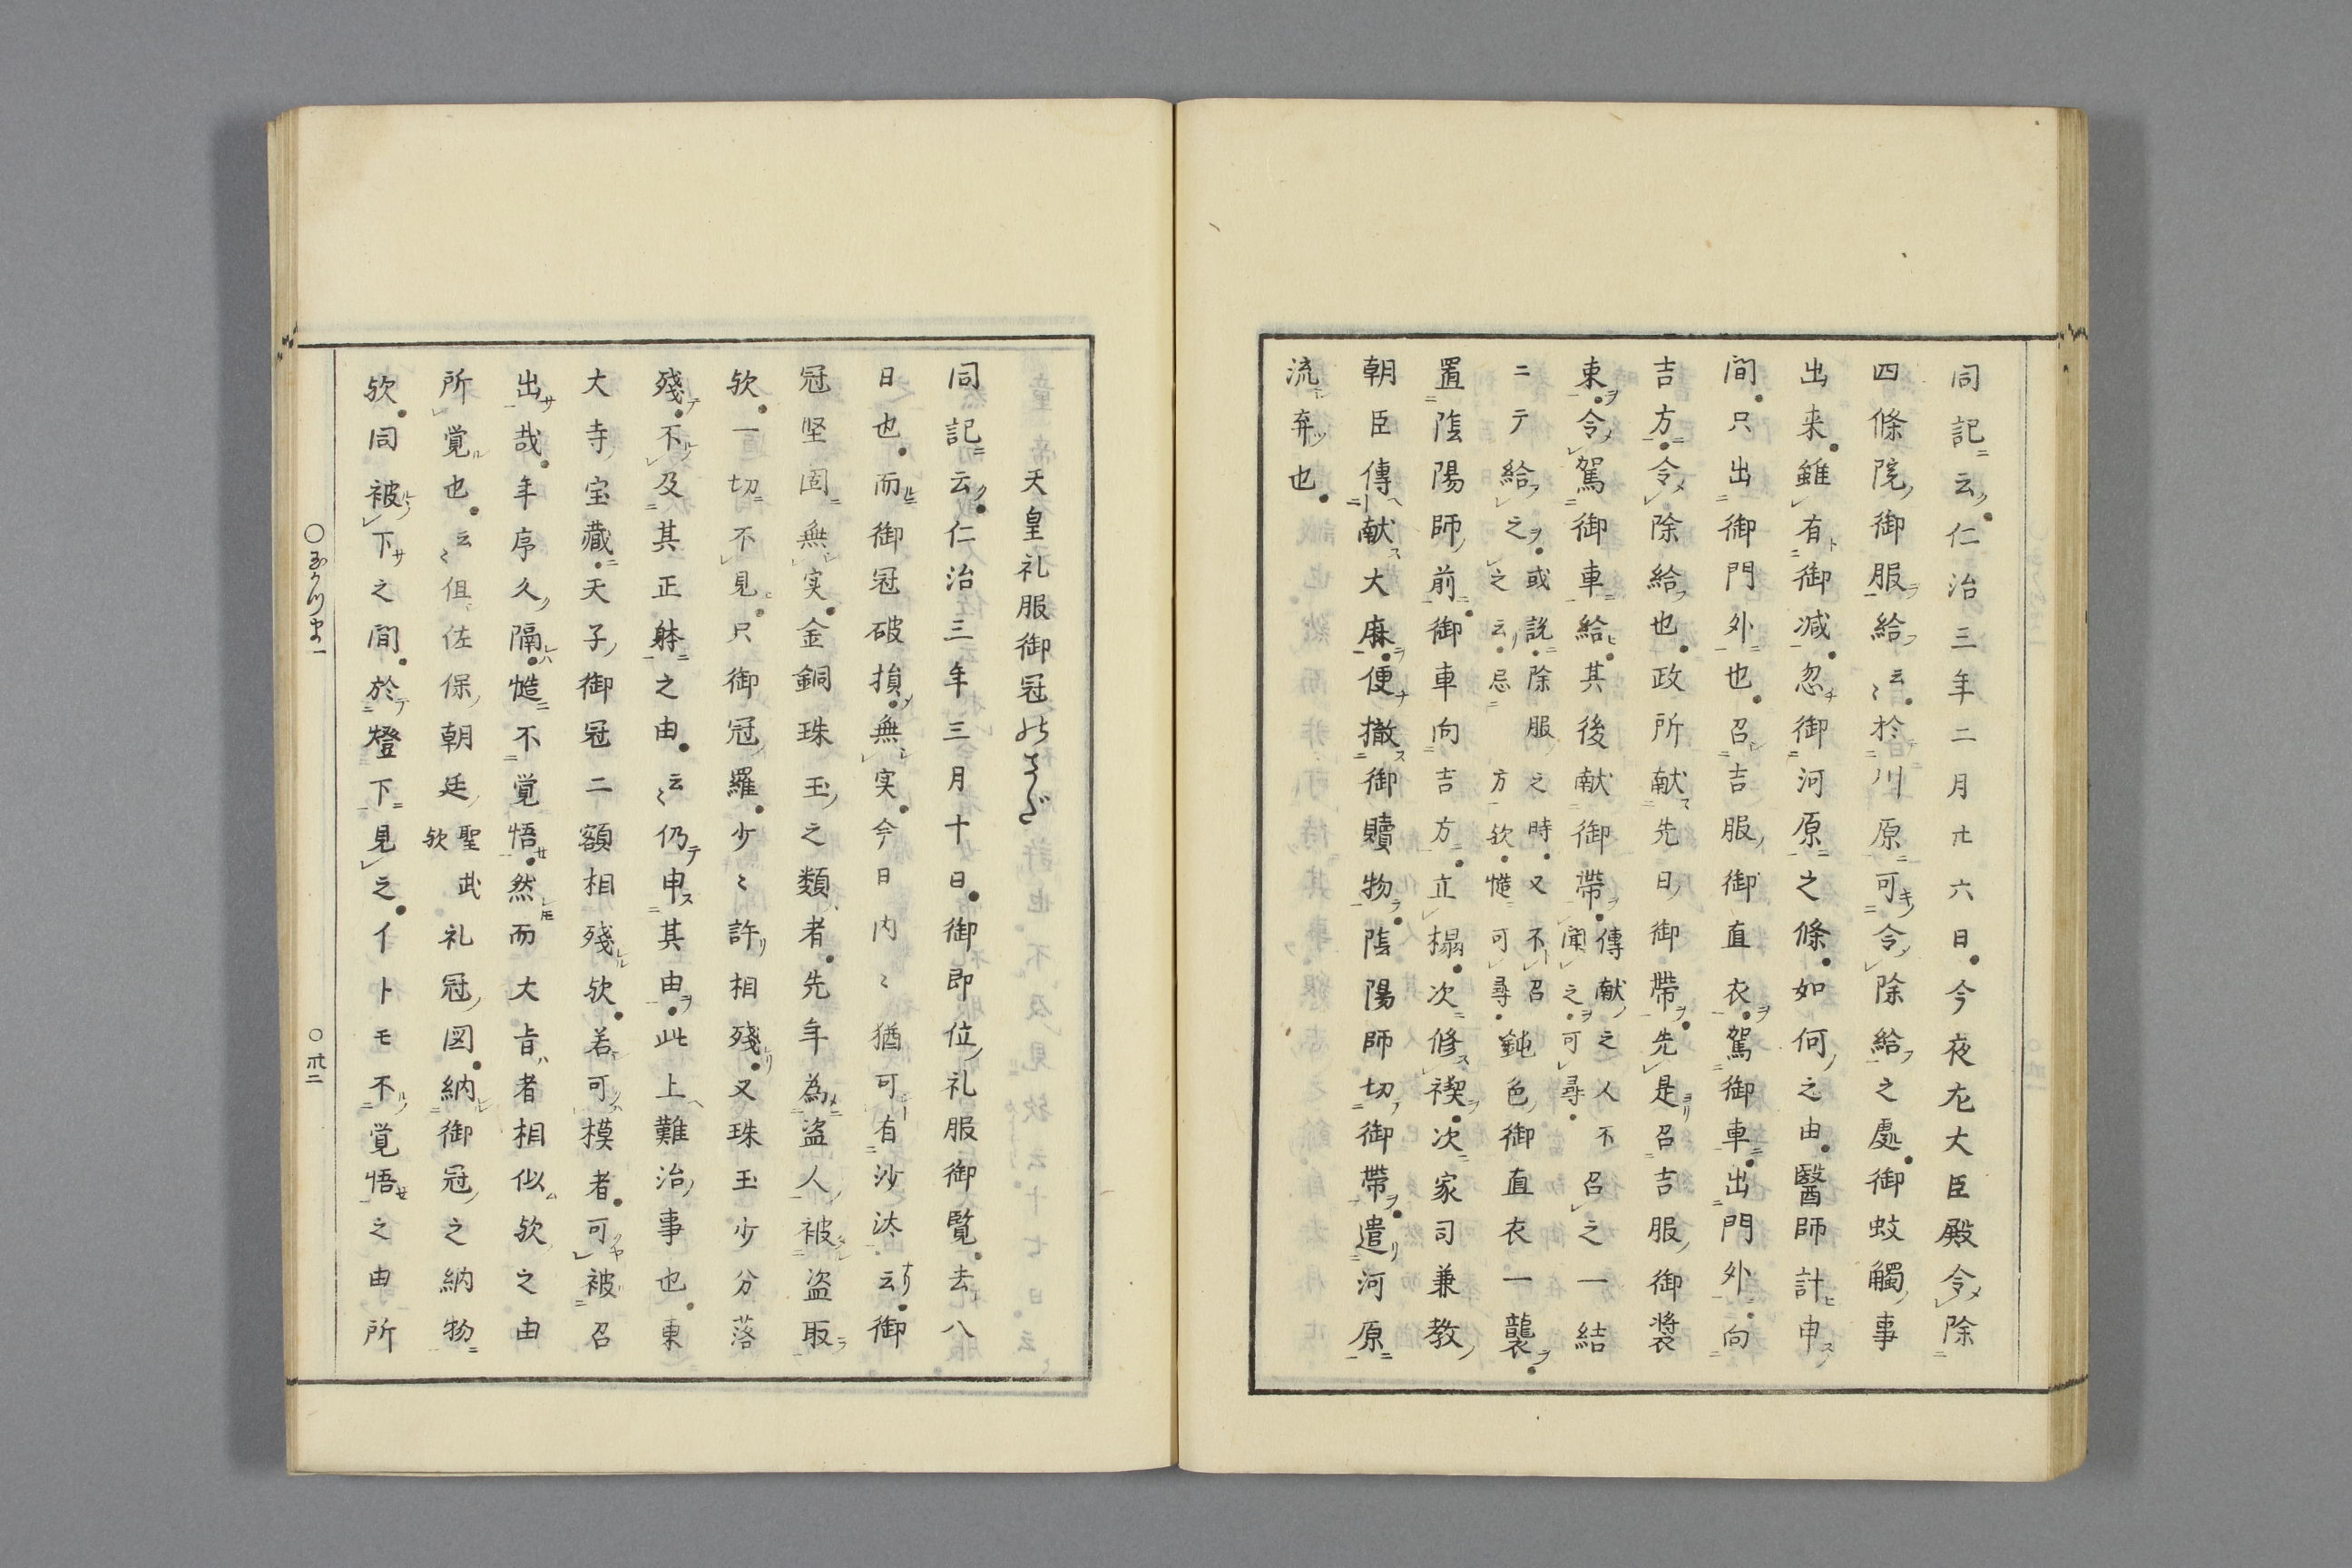 同記云仁治三年二月廿六日今夜左大臣殿令除
四條院御服給云〻於川原可令除給之處御蚊觸事
出来雖有御減忽御河原之條如何之由醫師計申
間只出御門外也召吉服御直衣駕御車出門外向
吉方令除給也政所献先日御帶先是召吉服御裝
束令駕御車給其後献御帶傳献之人不召之一結
聞之可尋
ニテ給之或説除服之時又不召
之云忌方欤慥可尋鈍色御直衣一襲
置陰陽師前御車向吉方立榻次修禊次家司兼教
朝臣傳献大麻便撤御贖物陰陽師切御帶遣河原
流弃也
天皇礼服御冠のさだ
同記云仁治三年三月十日御即位礼服御覧去八
日也而御冠破損無実今日内〻猶可有沙汰云御
冠堅固無実金銅珠玉之類者先年為盗人被盗取
欤一切不見只御冠羅少〻許相殘又珠玉少分落
殘不及其正躰之由云〻仍申其由此上難治事也東
大寺宝藏天子御冠二額相殘欤若可模者可被召
出哉年序久隔慥不覚悟然而大旨者相似欤之由
所覚也云〻但佐保朝廷聖武欤礼冠図納御冠之納物
欤同被下之間於燈下見之イトモ不覚悟之由所
〇玉かつま一
〇卅二